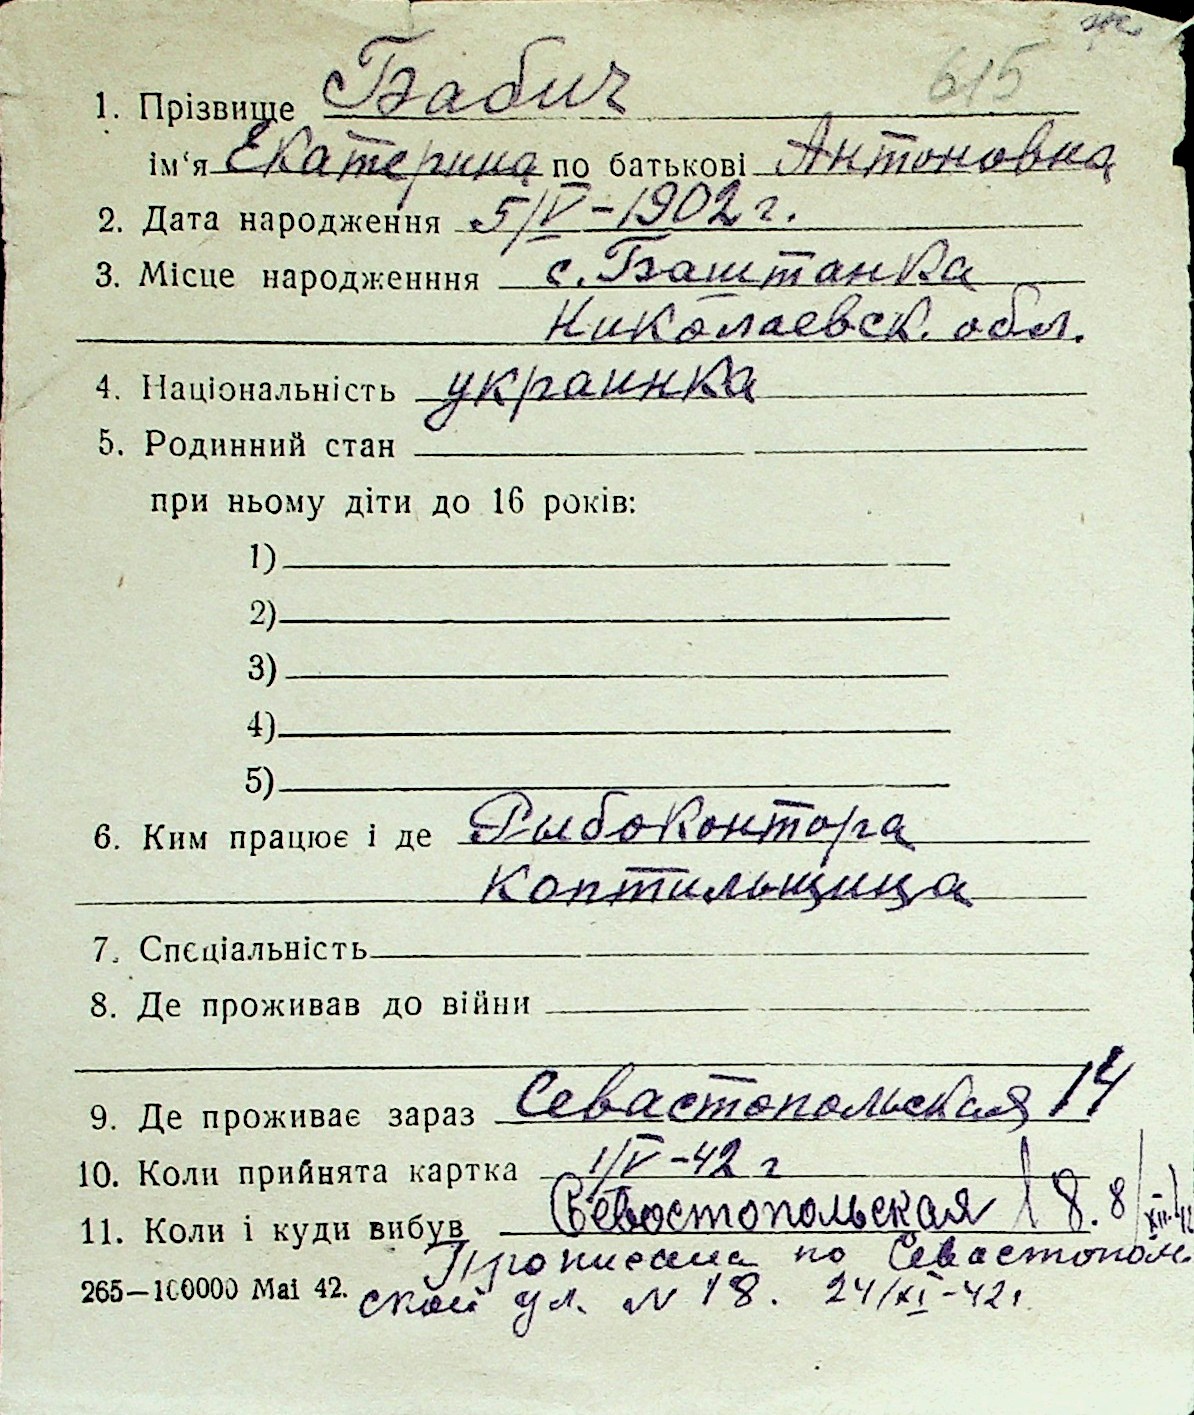 615
1. Прізвище Бабич
ім'я Екатерина по батькові Антоновна
2. Дата народження 5/V-1902 г.
3. Місце народженння с. Баштанка
Николаевск. обл.
4. Національність украинка
5. Родинний стан
при ньому діти до 16 років:
1)
2)
3)
4)
5)
6. Ким працює і де Рыбоконтора
коптильщица
7. Спєціальність
8. Де проживав до війни
9. Де проживає зараз Севастопольская 14
10. Коли прийнята картка 1/V-42 г
11. Коли і куди вибув Севостопольская 18. 8/XII-42
Прописана по Севастополь
ской ул. N 18. 24/XI-42г.
265—100000 Mai 42.